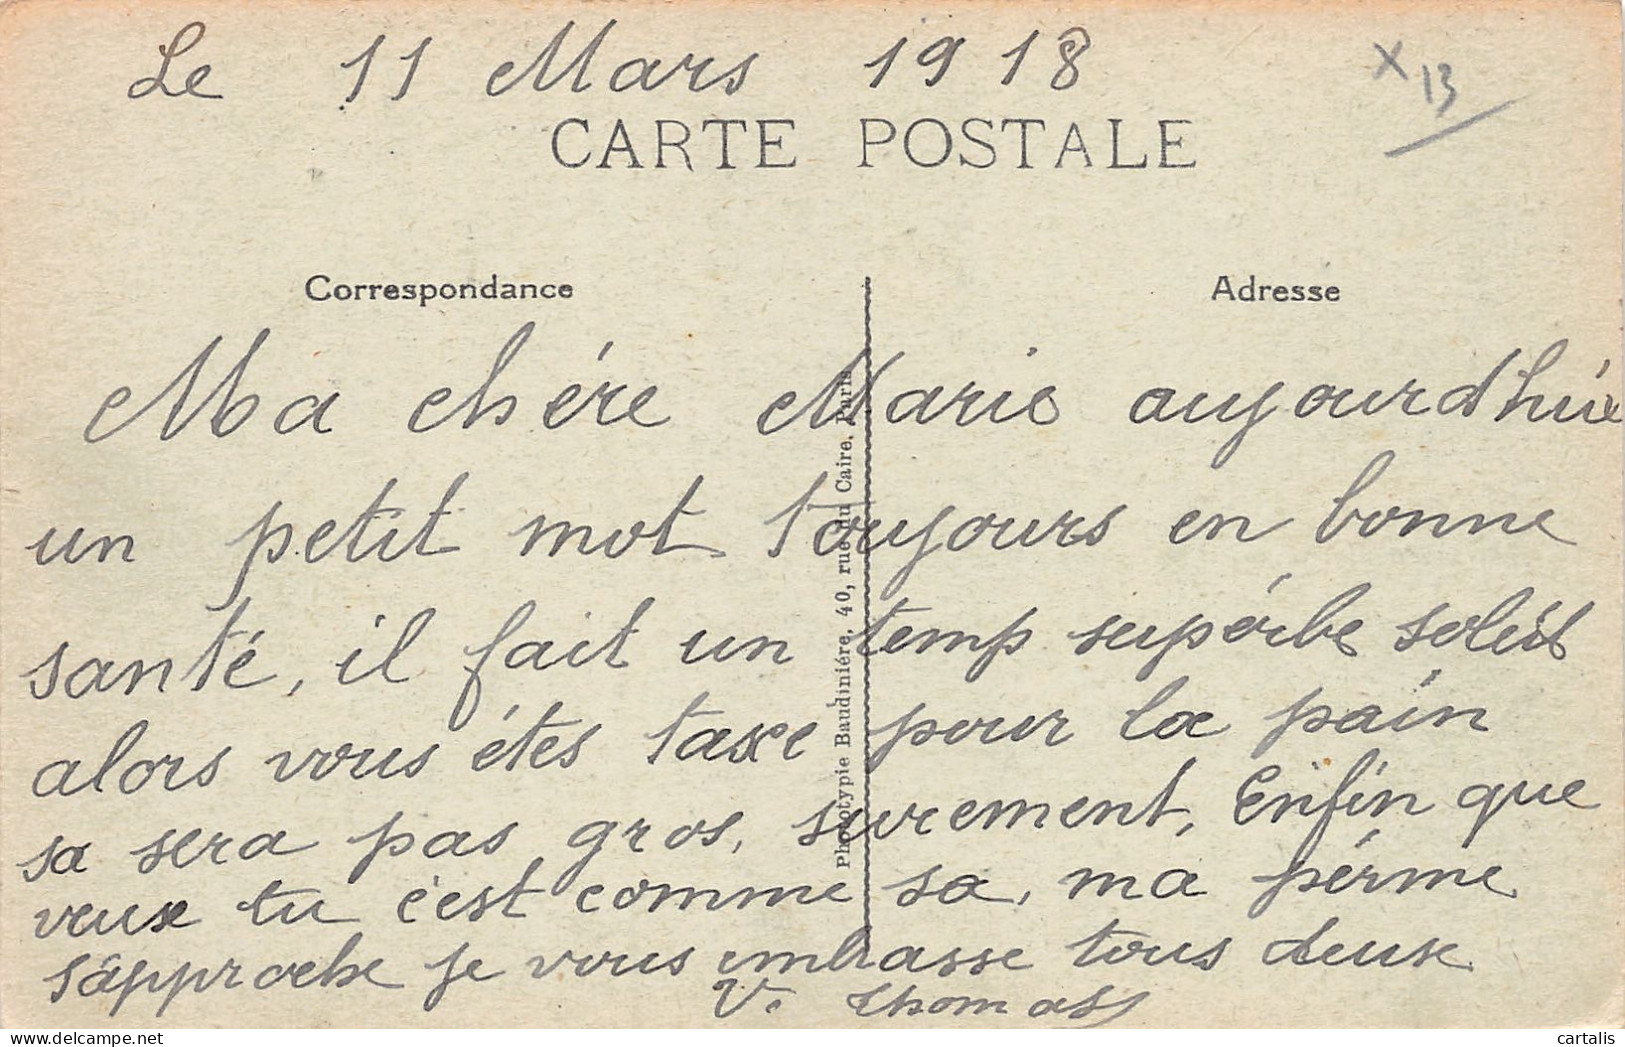 Le 11 Mars 1918
X 13
CARTE POSTALE
Correspondance
Adresse
Ma chére Marie aujourdhúie
un petit mot toujours en bonne
santé, il fait un temp supérbe soleit
alors vous étes taxe pour la pain
sa sera pas gros, surement, Enfin que
veux tu c'est comme sa, ma pérme
s'approche je vous embrasse tous deux
V. Thomas
Phototypie Baudinière, 40, rue du Caire, Paris
delcampe.net
cartalis